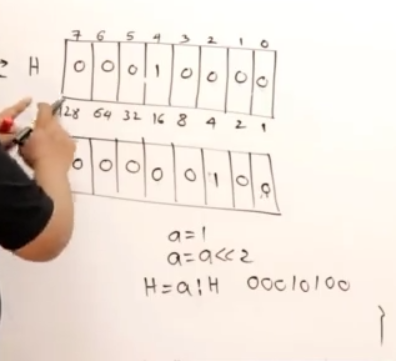 7 6 5 4 3 2 1 0
H 0 0 0 1 0 0 0 0
128 64 32 16 8 4 2 1
0 0 0 0 0 1 0 0
a=1
a=a<<2
H=a|H 00010100